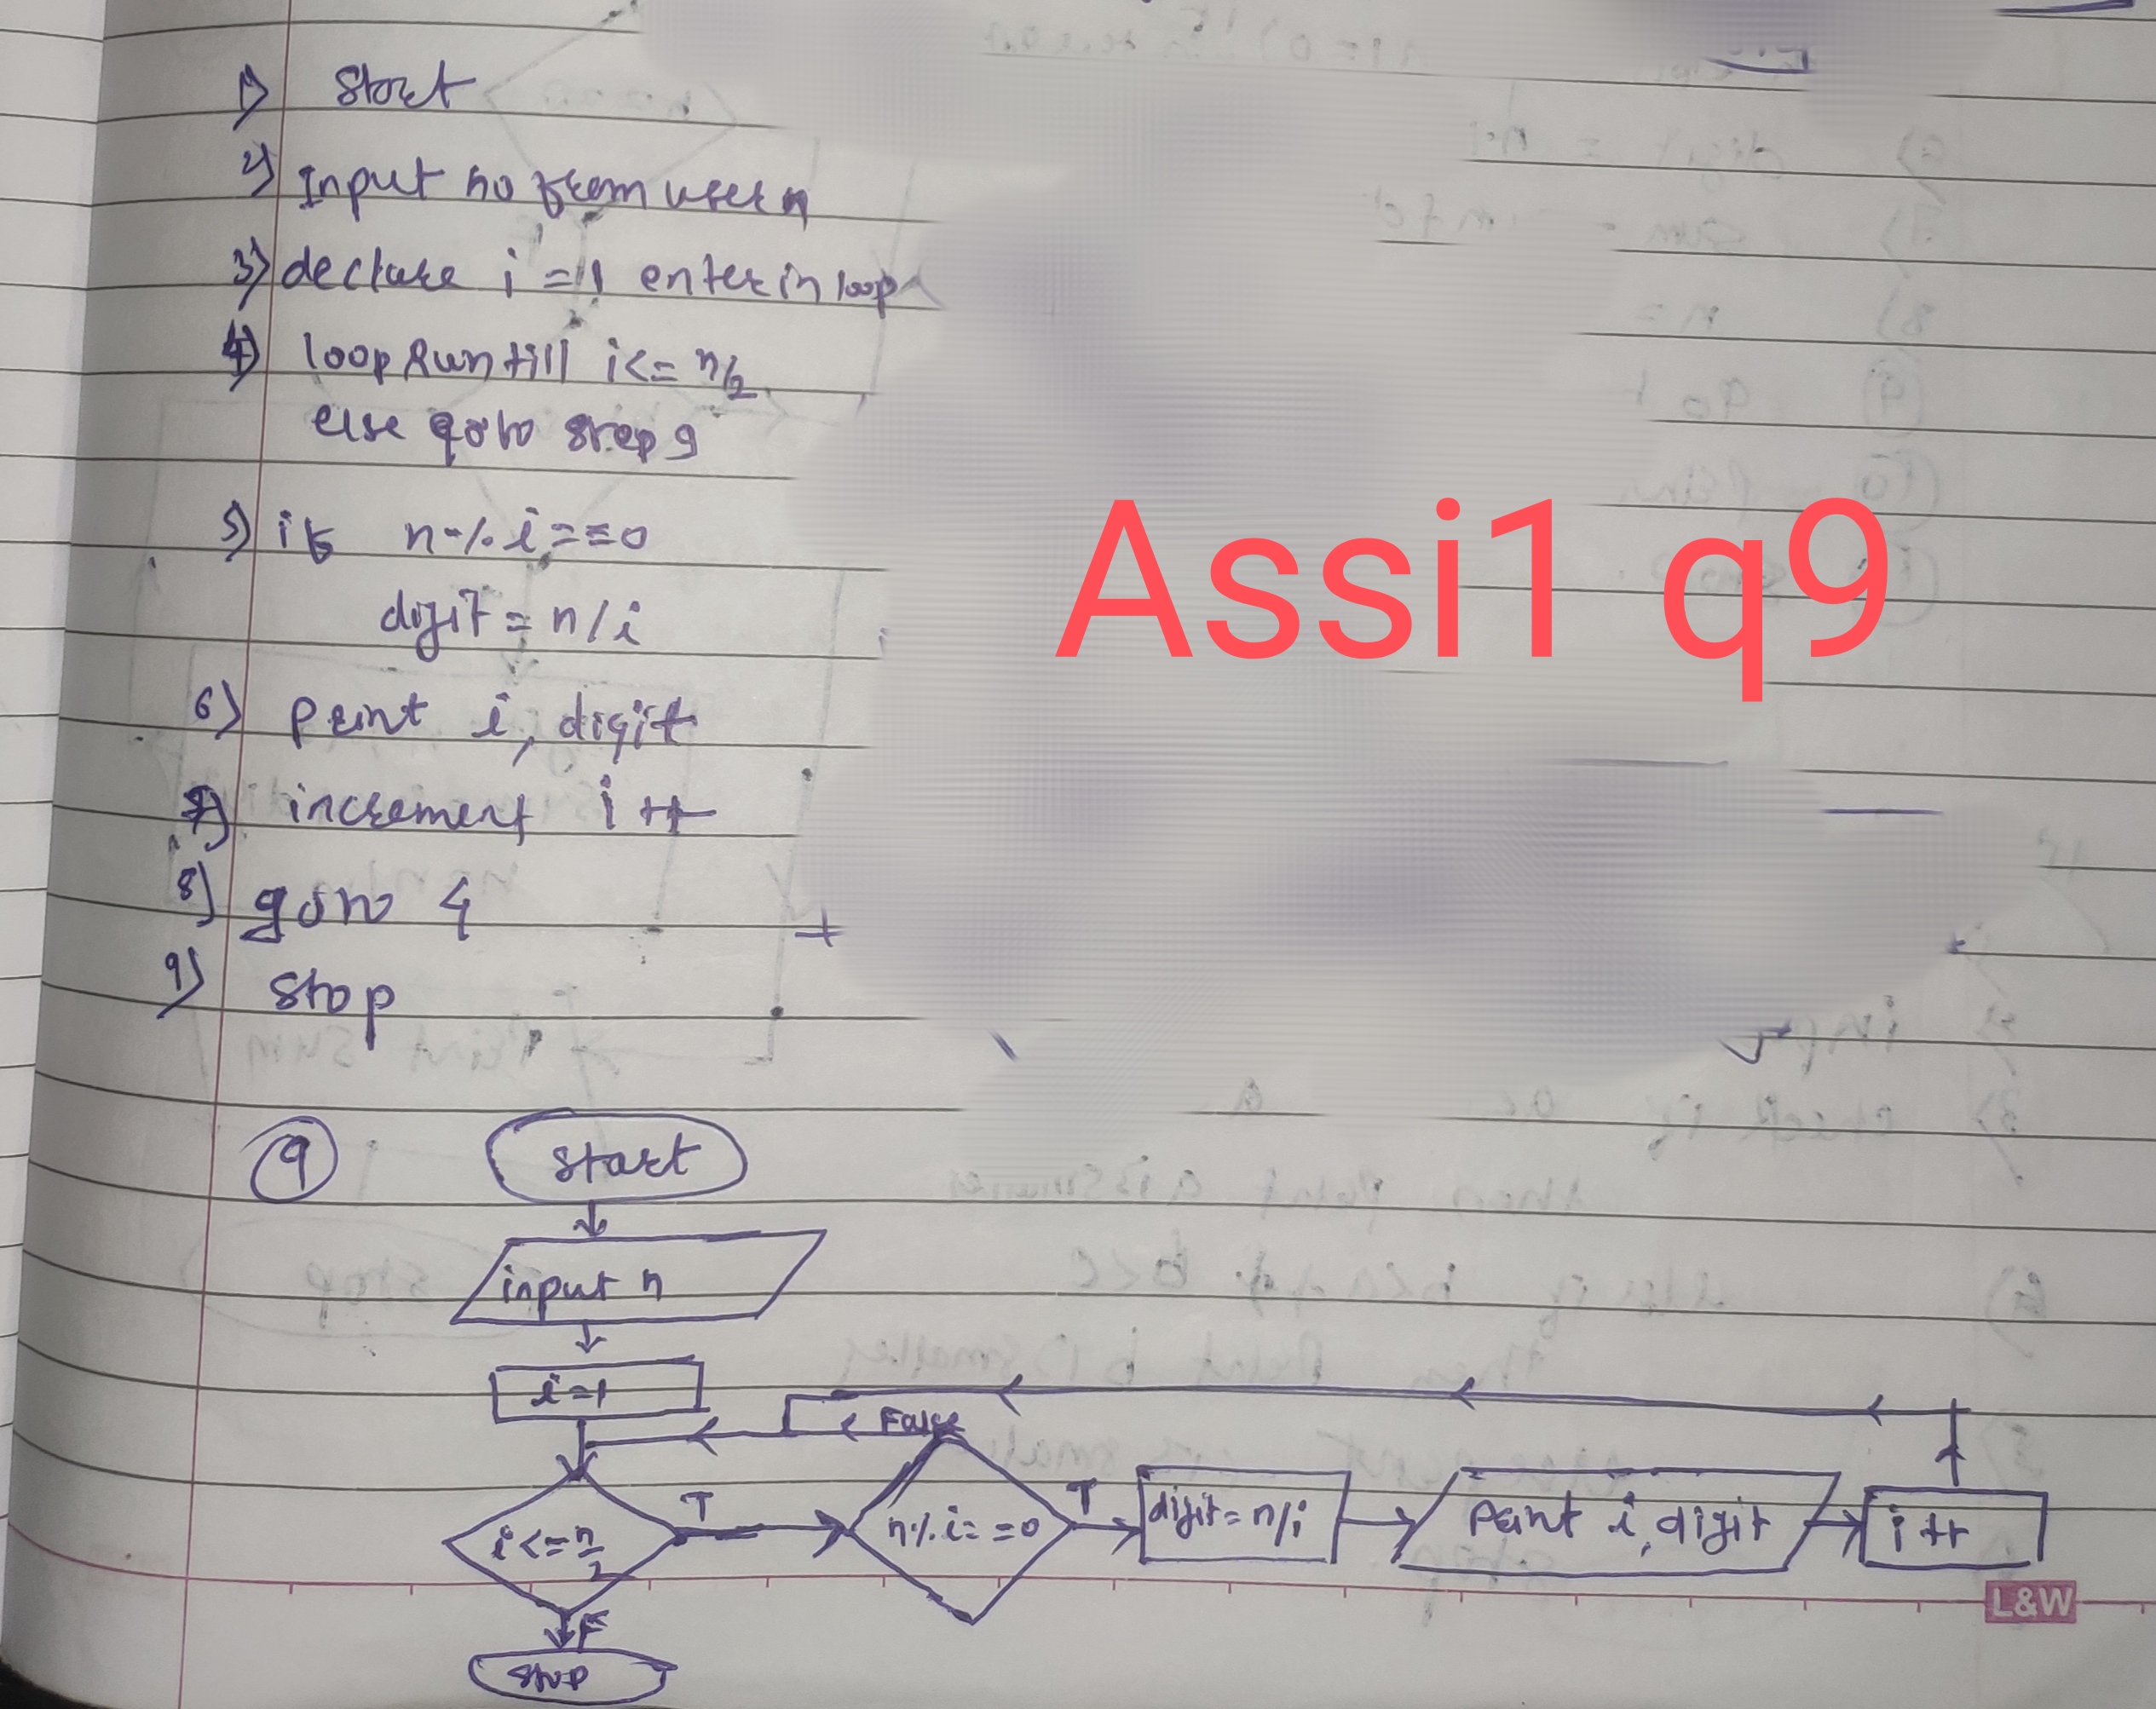 1) Start
2) Input no from user n
3) declare i = 1 enter in loop
4) loop Run till i <= n/2
else goto step 9
5) if n % i == 0
digit = n / i
6) print i, digit
7) increment i ++
8) goto 4
9) Stop
Assi1 q9
9
Start
input n
i = 1
False
i <= n/2
T
n % i == 0
T
digit = n/i
Print i, digit
i ++
F
Stop
L&W